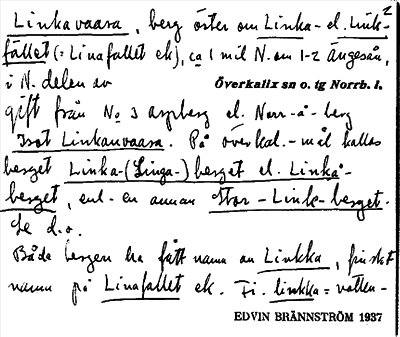 Linkavaara, berg öster om Linka- el. Link-2
fallet (= Linafallet ek), ca 1 mil N. om 1-2 Ängesån,
i N. delen av Överkalix sn o. tg Norrb. l.
gift från No 3 aspberg el. Norr-å-berg
Isot Linkanvaara. På överkal.-mål kallas
berget Linka-(Linga-) berget el. Linkå-
berget, enl. en annan Stor-Link-berget.
Se d.o.
Både bergen ha fått namn av Linkka, finsket
namn på Linafallet ek. Fi. linkka = vatten-
EDVIN BRÄNNSTRÖM 1937